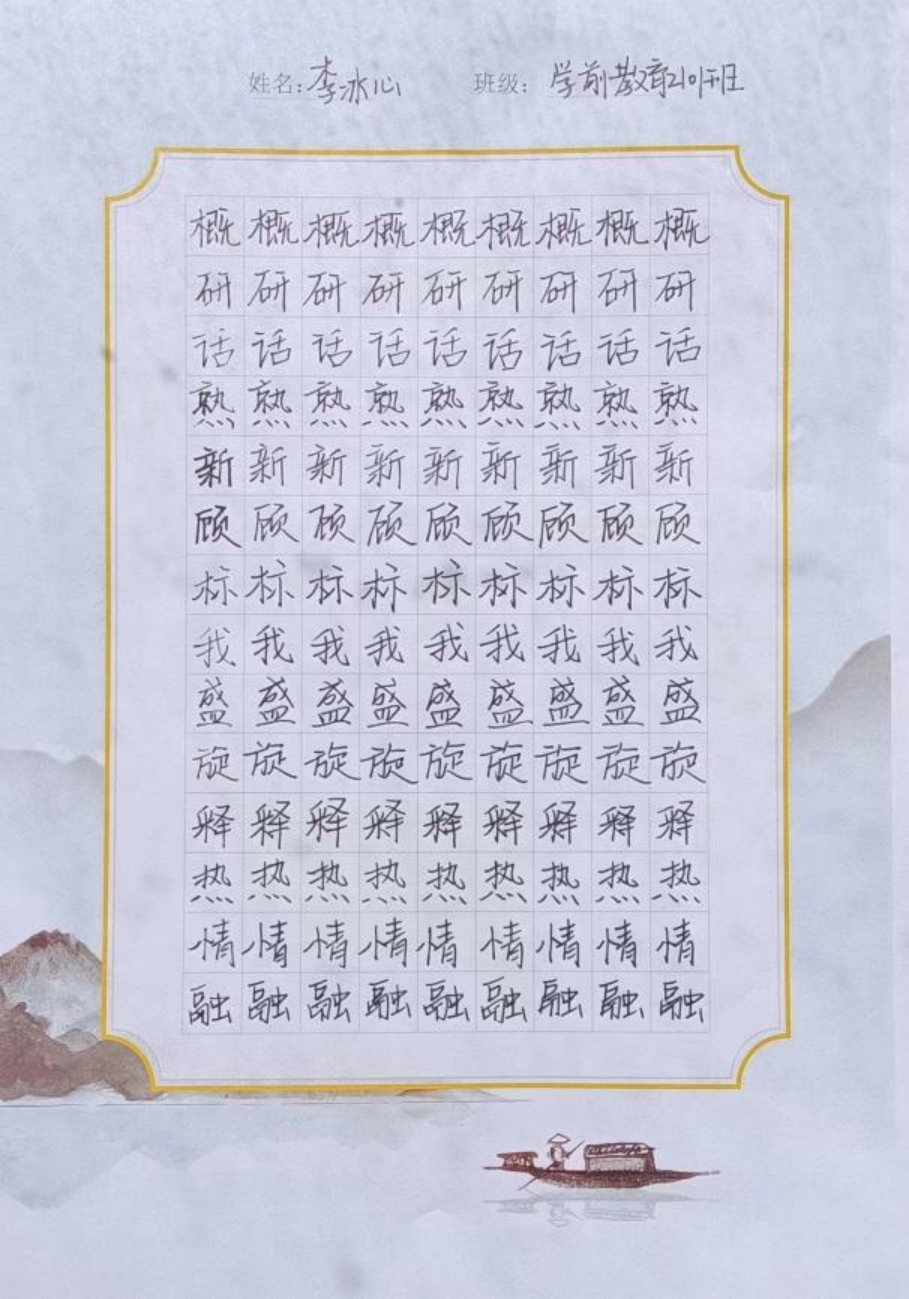 姓名:李冰心 班级:学前教育2101班
概概概概概概概概概
研研研研研研研研研
话话话话话话话话话
熟熟熟熟熟熟熟熟熟
新新新新新新新新新
顾顾顾顾顾顾顾顾顾
标标标标标标标标标
我我我我我我我我我
盛盛盛盛盛盛盛盛盛
旋旋旋旋旋旋旋旋旋
释释释释释释释释释
热热热热热热热热热
情情情情情情情情情
融融融融融融融融融